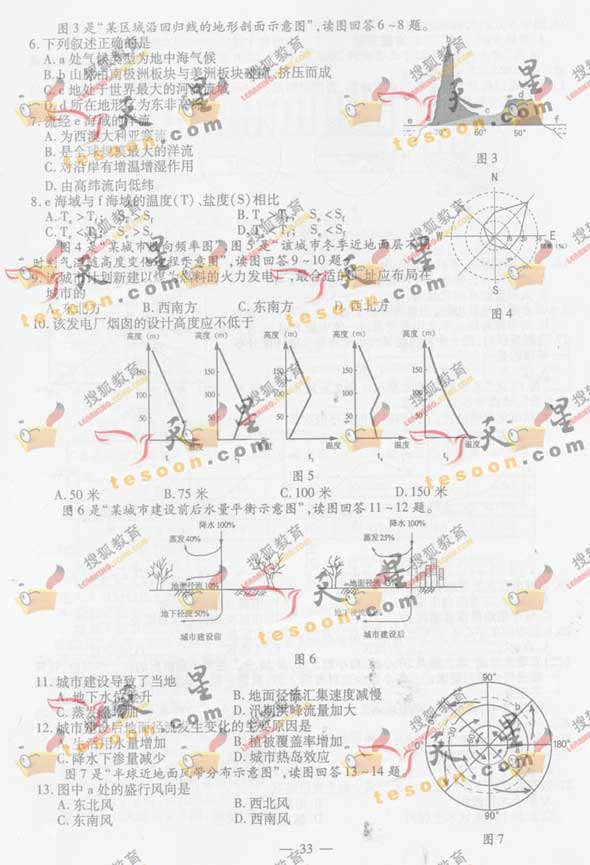 图3是“某区域沿回归线的地形剖面示意图”,读图回答6～8题。
6.下列叙述正确的是
A.a处气候类型为地中海气候
B.b山脉由南极洲板块与美洲板块碰撞、挤压而成
C.c地处于世界最大的河流流域
D.d所在地形区为东非高原
7.流经e海域的洋流
A.为西澳大利亚寒流
B.是全球规模最大的洋流
C.对沿岸有增温增湿作用
D.由高纬流向低纬
a
b
c
d
e
f
70°
60°
50°
图3
8.e海域与f海域的温度(T)、盐度(S)相比
A.Te>Tf; Se>Sf
B.Te>Tf; Se<Sf
C.Te<Tf; Se>Sf
D.Te<Tf; Se<Sf
N
W
E
S
(%)
图4
图4是“某城市风向频率图”,图5是“该城市冬季近地面层不同
时刻气温随高度变化过程示意图”,读图回答9～10题。
9.该城市计划新建以煤为燃料的火力发电厂,最合适的厂址应布局在
城市的
A.东北方
B.西南方
C.东南方
D.西北方
10.该发电厂烟囱的设计高度应不低于
高度 (m)
高度 (m)
高度 (m)
高度 (m)
高度 (m)
150
100
50
150
100
50
150
100
50
150
100
50
150
100
50
温度
温度
温度
温度
温度
图5
A.50 米
B.75 米
C.100 米
D.150 米
图6是“某城市建设前后水量平衡示意图”,读图回答11～12题。
降水100%
蒸发40%
地面径流10%
地下径流50%
城市建设前
降水100%
蒸发25%
地面径流
地下径流
城市建设后
图6
11.城市建设导致了当地
A.地下水位上升
B.地面径流汇集速度减慢
C.蒸发量增加
D.汛期洪峰流量加大
12.城市建设后地面径流发生变化的主要原因是
A.生活用水量增加
B.植被覆盖率增加
C.降水下渗量减少
D.城市热岛效应
图7是“半球近地面风带分布示意图”,读图回答13～14题。
13.图中a处的盛行风向是
A.东北风
B.西北风
C.东南风
D.西南风
90°
0°
180°
90°
图7
— 33 —
搜狐教育
LEARNING.SOHU.COM
天星
tesoon.com